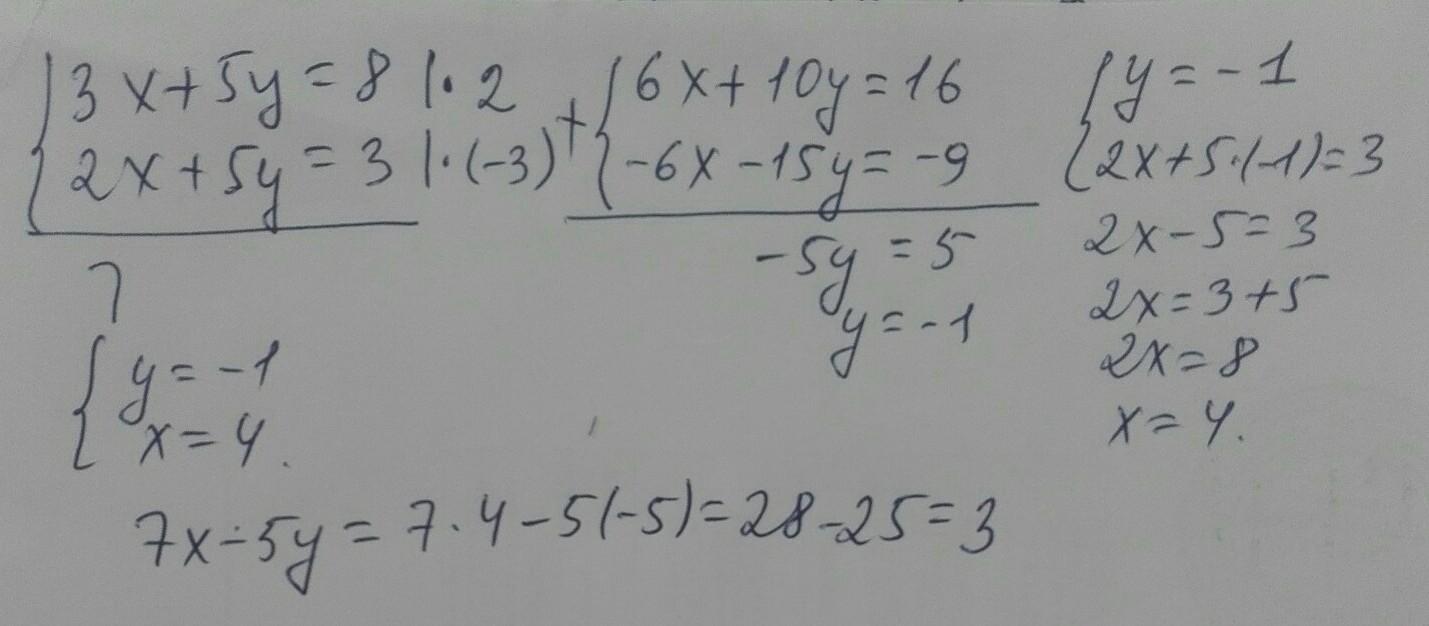 3x+5y=8 |·2
2x+5y=3 |·(-3)
+
6x+10y=16
-6x-15y=-9
-5y=5
y=-1
y=-1
2x+5·(-1)=3
2x-5=3
2x=3+5
2x=8
x=4.
y=-1
x=4.
7x-5y=7·4-5(-5)=28-25=3